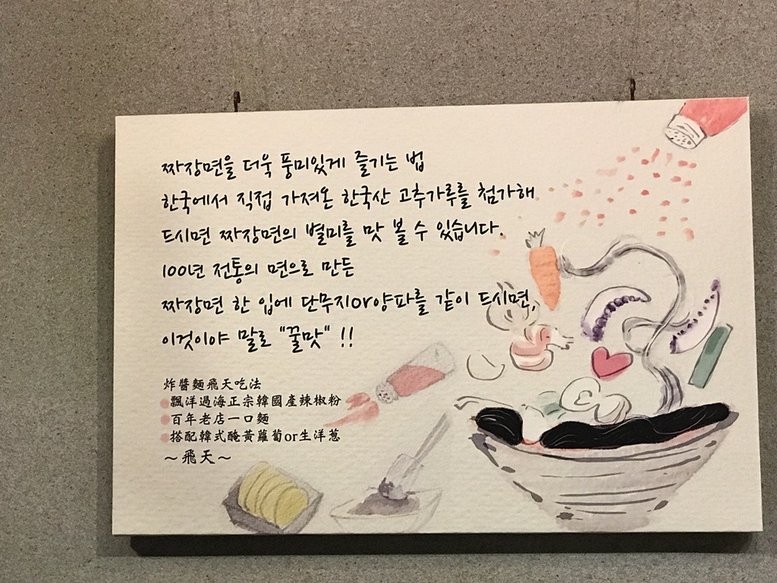 짜장면을 더욱 풍미있게 즐기는 법
한국에서 직접 가져온 한국산 고추가루를 첨가해
드시면 짜장면의 별미를 맛 볼 수 있습니다.
100년 전통의 면으로 만든
짜장면 한 입에 단무지or양파를 같이 드시면,
이것이야 말로 "꿀맛" !!
炸醬麵飛天吃法
●飄洋過海正宗韓國產辣椒粉
●百年老店一口麵
●搭配韓式醃黃蘿蔔or生洋蔥
～飛天～